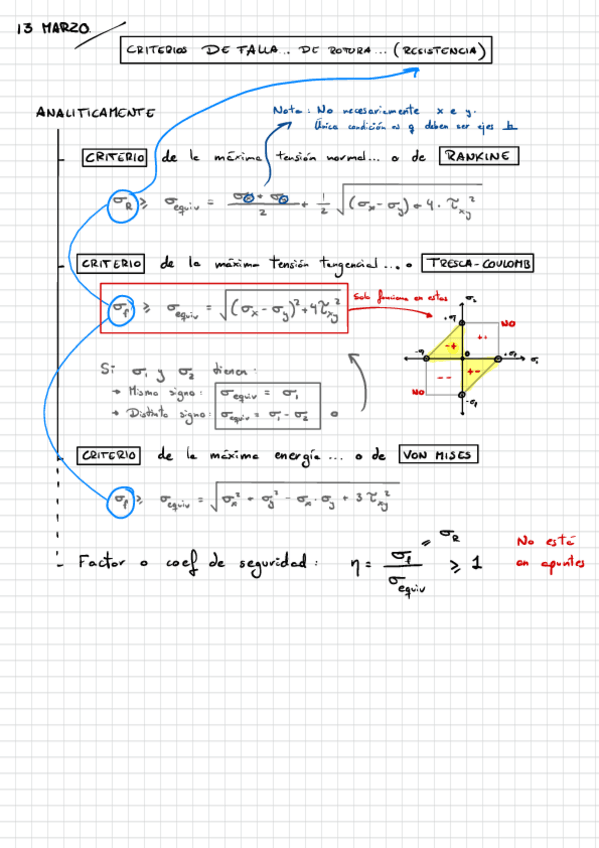 13 MARZO
CRITERIOS DE FALLA... DE ROTURA... (RESISTENCIA)
ANALITICAMENTE
Nota: No necesariamente x e y.
Única condición es q deben ser ejes ⊥
- CRITERIO de la máxima tensión normal... o de RANKINE
σ_R ≥ σ_equiv = (σ + σ)/2 + 1/2 √((σ_x - σ_y) + 4·τ_xy²)
- CRITERIO de la máxima tensión tangencial... o TRESCA-COULOMB
σ_f ≥ σ_equiv = √((σ_x - σ_y)² + 4τ_xy²)
Solo funciona en estas
σ₂
+σ_f
NO
-+
++
-σ_f
0
+σ_f
σ₁
--
+-
NO
-σ_f
Si σ₁ y σ₂ tienen:
→ Mismo signo: σ_equiv = σ₁
→ Distinto signo: σ_equiv = σ₁ - σ₂
- CRITERIO de la máxima energía... o de VON MISES
σ_f ≥ σ_equiv = √(σ_x² + σ_y² - σ_x·σ_y + 3τ_xy²)
- Factor o coef de seguridad: η = σ_f/σ_equiv ≥ 1
= σ_R
No está
en apuntes